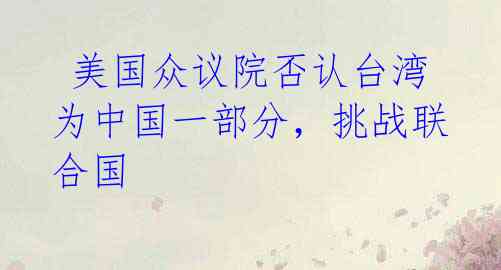 美国众议院否认台湾
为中国一部分，挑战联
合国